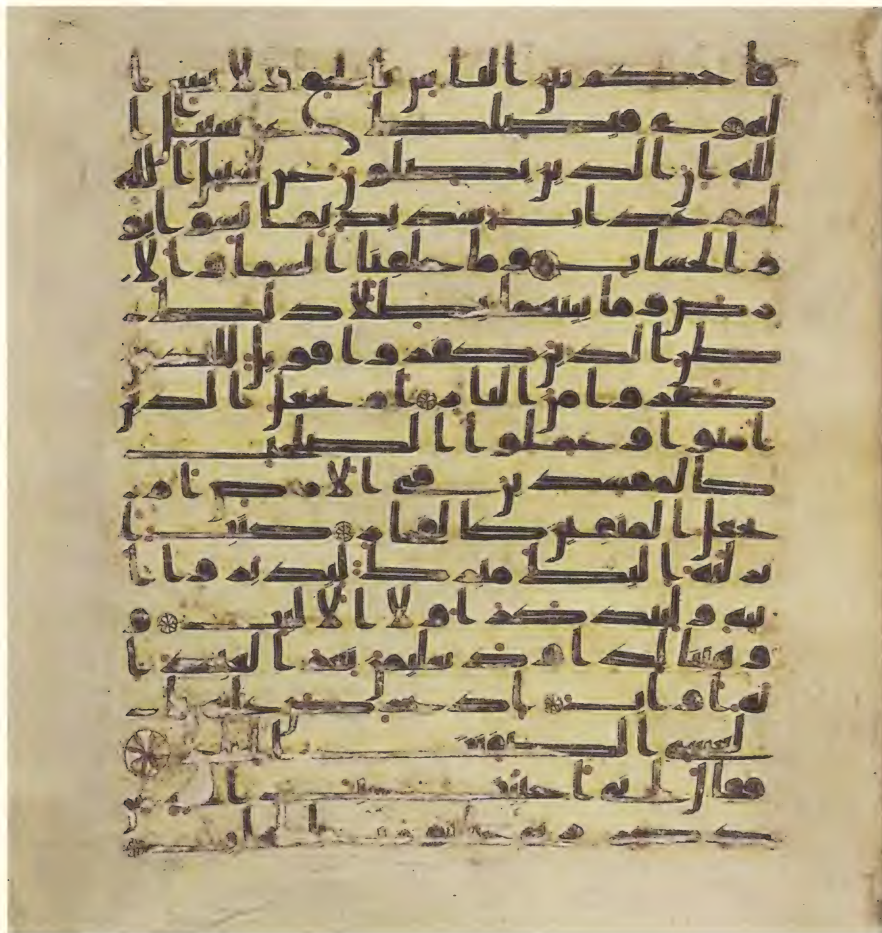 فاحكم بين الناس بالحق ولا تتبع ا
لهوى فيضلك عن سبيل ا
لله ان الذين يضلون عن سبيل الله
لهم عذاب شديد بما نسوا يو
م الحساب وما خلقنا السما والا
رض وما بينهما بطلا ذلك
ظن الذين كفروا فويل للذين
كفروا من النار ام نجعل الذين
امنوا وعملوا الصلحت
كالمفسدين في الارض ام
نجعل المتقين كالفجار كتب ا
نزلنه اليك مبرك ليدبروا ا
يته وليتذكر اولوا الالبب و
وهبنا لداود سليمن نعم العبد ا
نه اواب اذ عرض عليه با
لعشي الصفنت الجياد
فقال اني احببت حب الخير
عن ذكر ربي حتى توارت بالحجاب